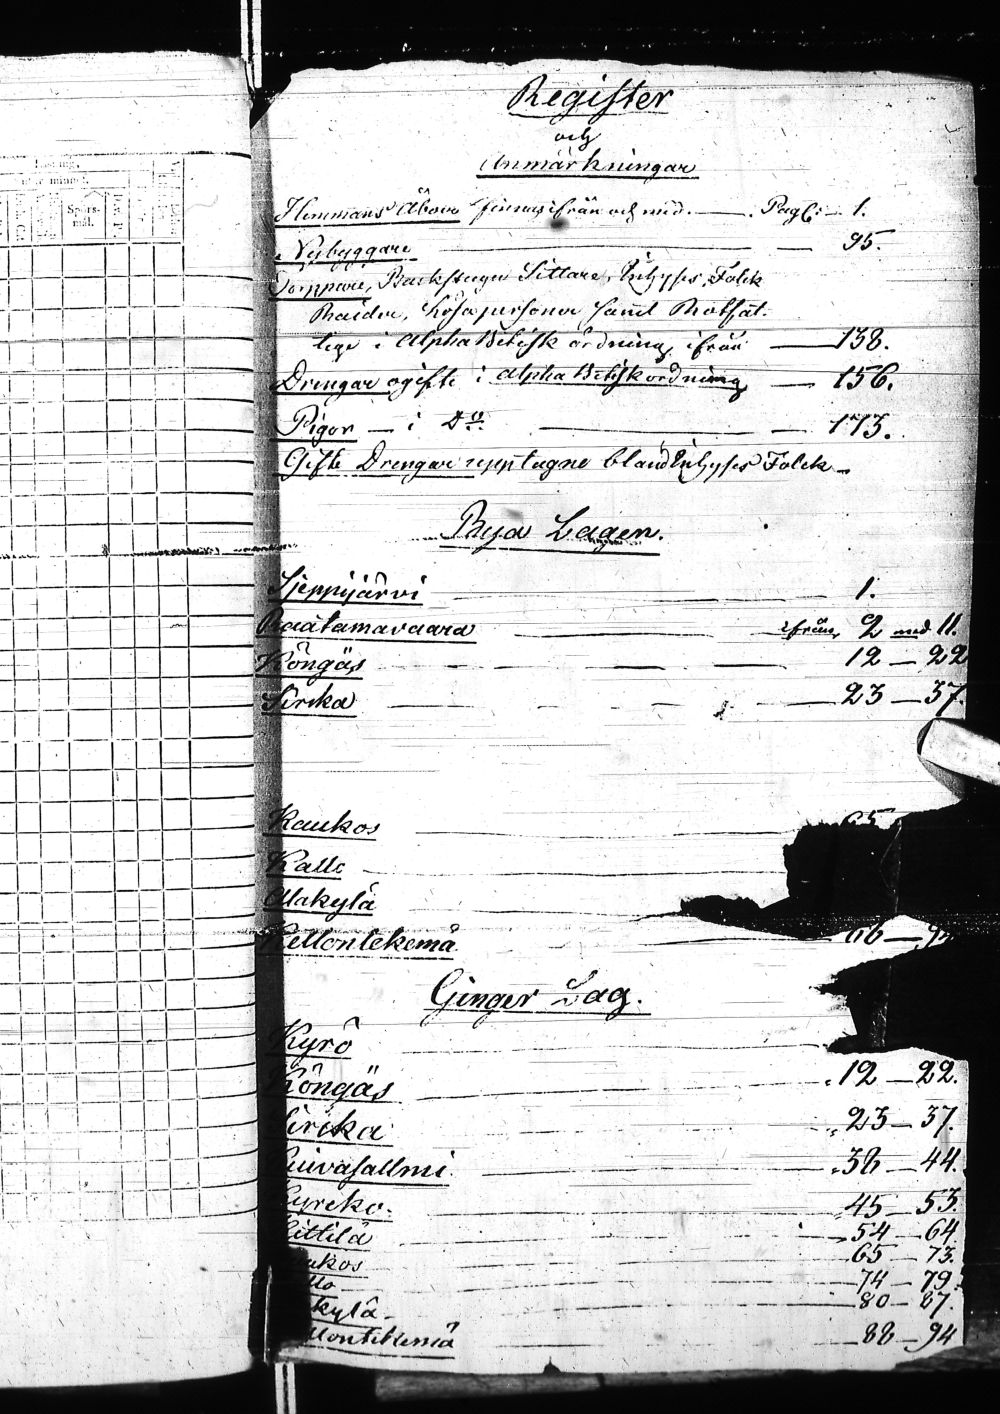 Register
och
Anmärkningar
Hemmans Åboer finnas ifrån och med. Pag: 1.
Nybyggare 95.
Sompare, Backstugu Sittare, Inhyses, Folck
samt Rotfat-
lige i AlphaBetisk ordning ifrån 138.
Drengar ogifte i AlphaBetisk ordning 156.
Pigor — i Do. 173.
Gifte Drengar upptagne bland Inhyses Folck
Bya Lagen.
Sjeppijärvi 1.
Raatamavaara ifrån 2 med 11.
Köngäs 12 — 22
Sirkka 23 — 37.
Kaukos 65
Kallo
Alakylä
Kellontekemä
Ginger Lag.
Kyrö
Köngäs 12 — 22.
Sirkka 23 — 37.
Kuivasallmi 38 — 44.
45 — 53.
Kittilä 54 — 64
kos 65 — 73.
llo 74 — 79.
kylä 80 — 87.
llontekemä 88 — 94
Spörs-
mål.